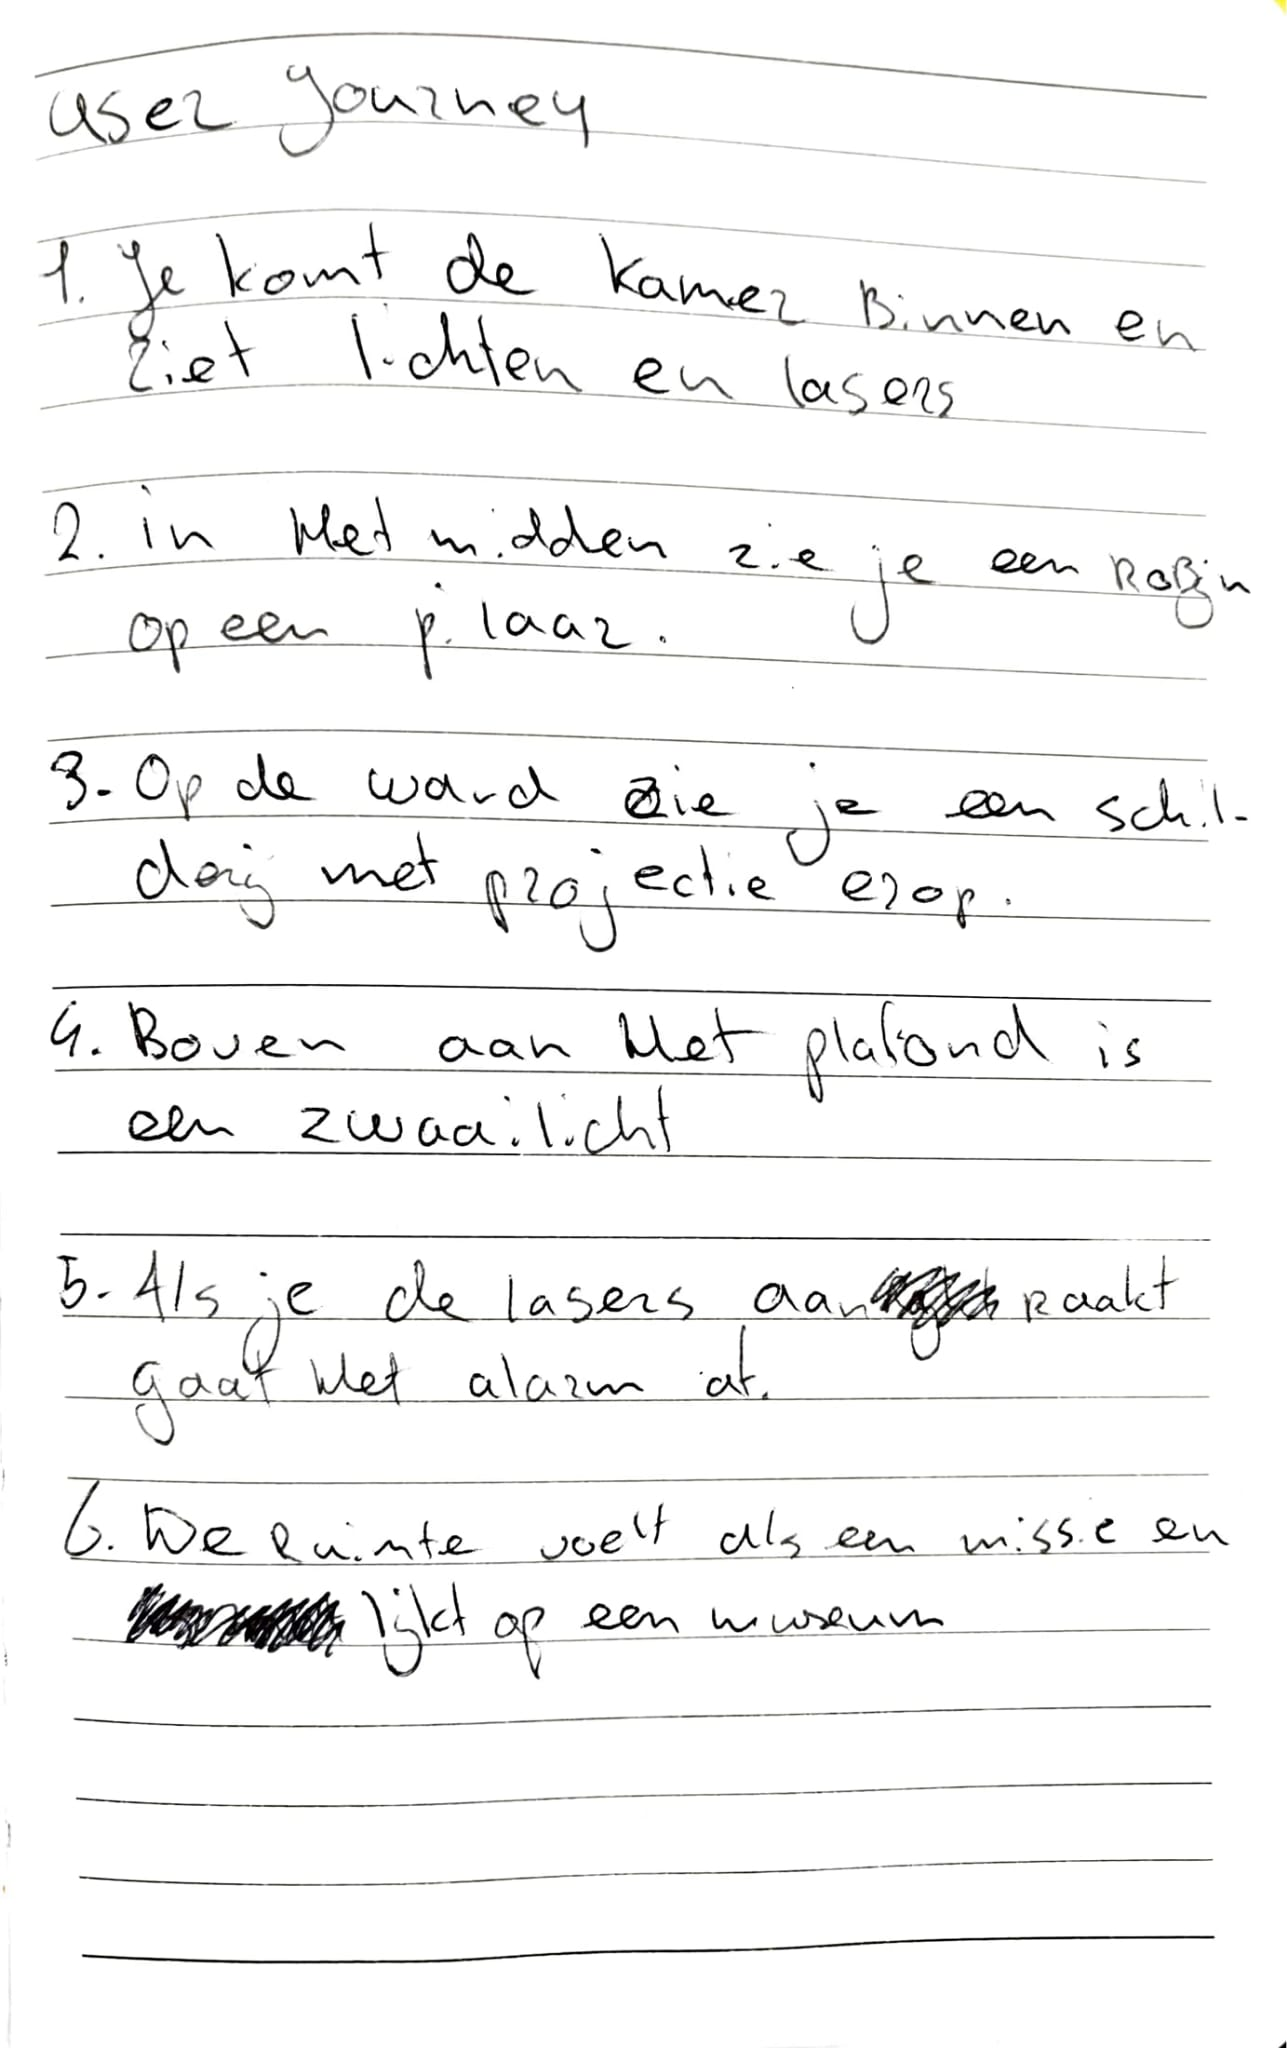 user journey
1. Je komt de kamer Binnen en
ziet lichten en lasers
2. in Het midden zie je een RoBijn
op een pilaar.
3. Op de wand zie je een schil-
derij met projectie erop.
4. Boven aan Het plafond is
een zwaailicht
5. Als je de lasers aan raakt
gaat Het alarm af.
6. De Ruimte voelt als een missie en
lijkt op een museum